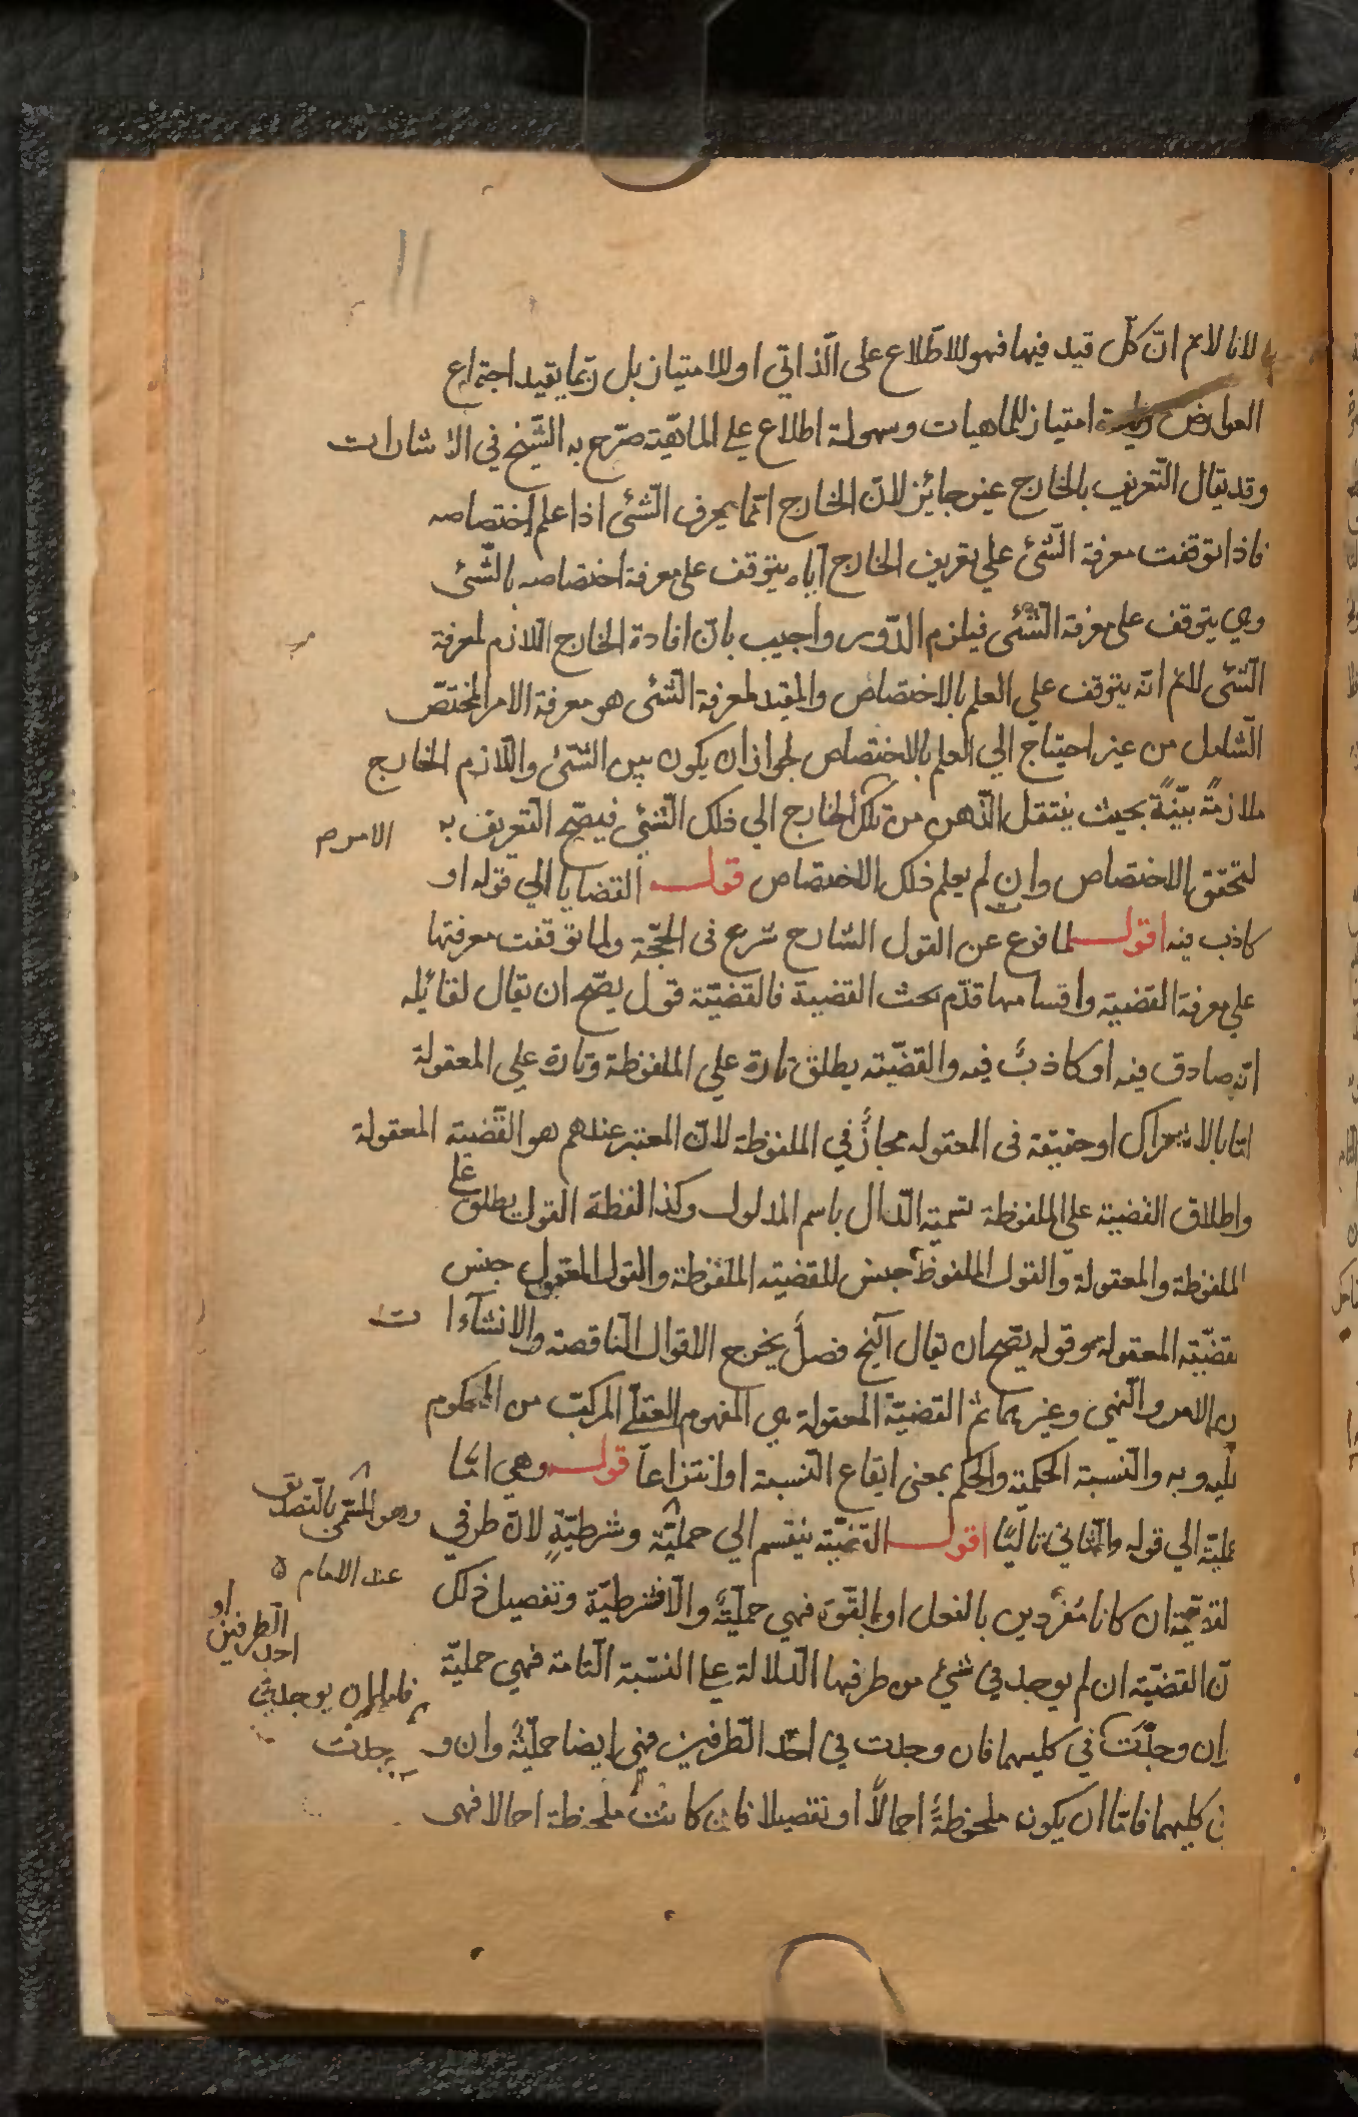 لانا لانم ان كلّ قيد فيها فهو للاطّلاع على الّذاتي او للامتياز بل ربّما يفيد اجتماع
العوارض امتياز للماهيات وسهولة اطلاع علي الماهيّة صرّح به الشّيخ في الاشارات
وقد يقال التّعريف بالخارج غير جائز لانّ الخارج انّما يعرف الشّئ اذا علم اختصاصه
فاذا توقفت معرفة الشّئ علي تعريف الخارج ايّاه يتوقف على معرفة اختصاصه بالشّئ
وهي يتوقف على معرفة الشّئ فيلزم الدّور واجيب بانّ افادة الخارج اللازم لمعرفة
الشّئ لانم انّه يتوقف علي العلم بالاختصاص والمفيد لمعرفة الشّئ هو معرفة الامر المختصّ
الشّامل من غير احتياج الي العلم بالاختصاص لجواز ان يكون بين الشّئ واللّازم الخارج
ملازمةً بيّنةً بحيث ينتقل الذّهن من تلك الخارج الي ذلك الشّئ فيصحّ التّعريف به
الامر م
لتحقق الاختصاص وان لم يعلم ذلك الاختصاص قوله القضايا الي قوله او
كاذب فيه اقول لما فرغ عن القول الشارح شرع فى الحجّة ولما توقفت معرفتها
علي معرفة القضية واقسامها قدّم بحث القضية فالقضيّة قول يصحّ ان يقال لقائله
انّه صادق فيه او كاذبٌ فيه والقضيّة يطلق تارة علي الملفوظة وتارة علي المعقولة
امّا بالاشتراك او حقيقة فى المعقوله مجازٌ في الملفوظة لانّ المعتبر عندهم هو القّضية المعقولة
واطلاق القضية على الملفوظة تسمية الدّال باسم المدلول وكذا لفظة القول يطلق علي
الملفوظة والمعقولة والقول الملفوظ جنس للقضيّة الملفوظة والقول المعقول جنس
قضيّة المعقولة وقوله يصّح ان يقال آلخ فصلٌ يخرج الاقوال النّاقصة والانشآءات
من الامر والنّهي وغيرهما ثمّ القضيّة المعقولة هي المفهوم العقلّي المركّب من المحكوم
عليه وبه والنّسبة الحكمية والحكم بمعنى ايقاع النّسبة او انتزاعاً قوله وهي امّا
وهو المسّمى بالتّصديق
عند الامام ٥
حمليّة الي قوله والثّاني تاليًا اقول القضيّة ينقسم الي حمليّة وشرطيّةٍ لانّ طرفي
القضيّة ان كانا مفردين بالفعل او بالقّوة فهي حمليّةٌ والّا فشرطيّة وتفصيل ذلك
انّ القضيّة ان لم يوجد في شئ من طرفيها الّدلالة علي النسّبة التّامة فهي حمليّة
او
الّطرفين
احد
فاما ان يوجد في
وان وجدّت في كليهما فان وجدت في احّد الطّرفين فهي ايضا حمليّةٌ وان وجدت
في كليهما فامّا ان يكون ملحوظةً اجمالاً او تفصيلا فان كانت ملحوظة اجمالا فهى